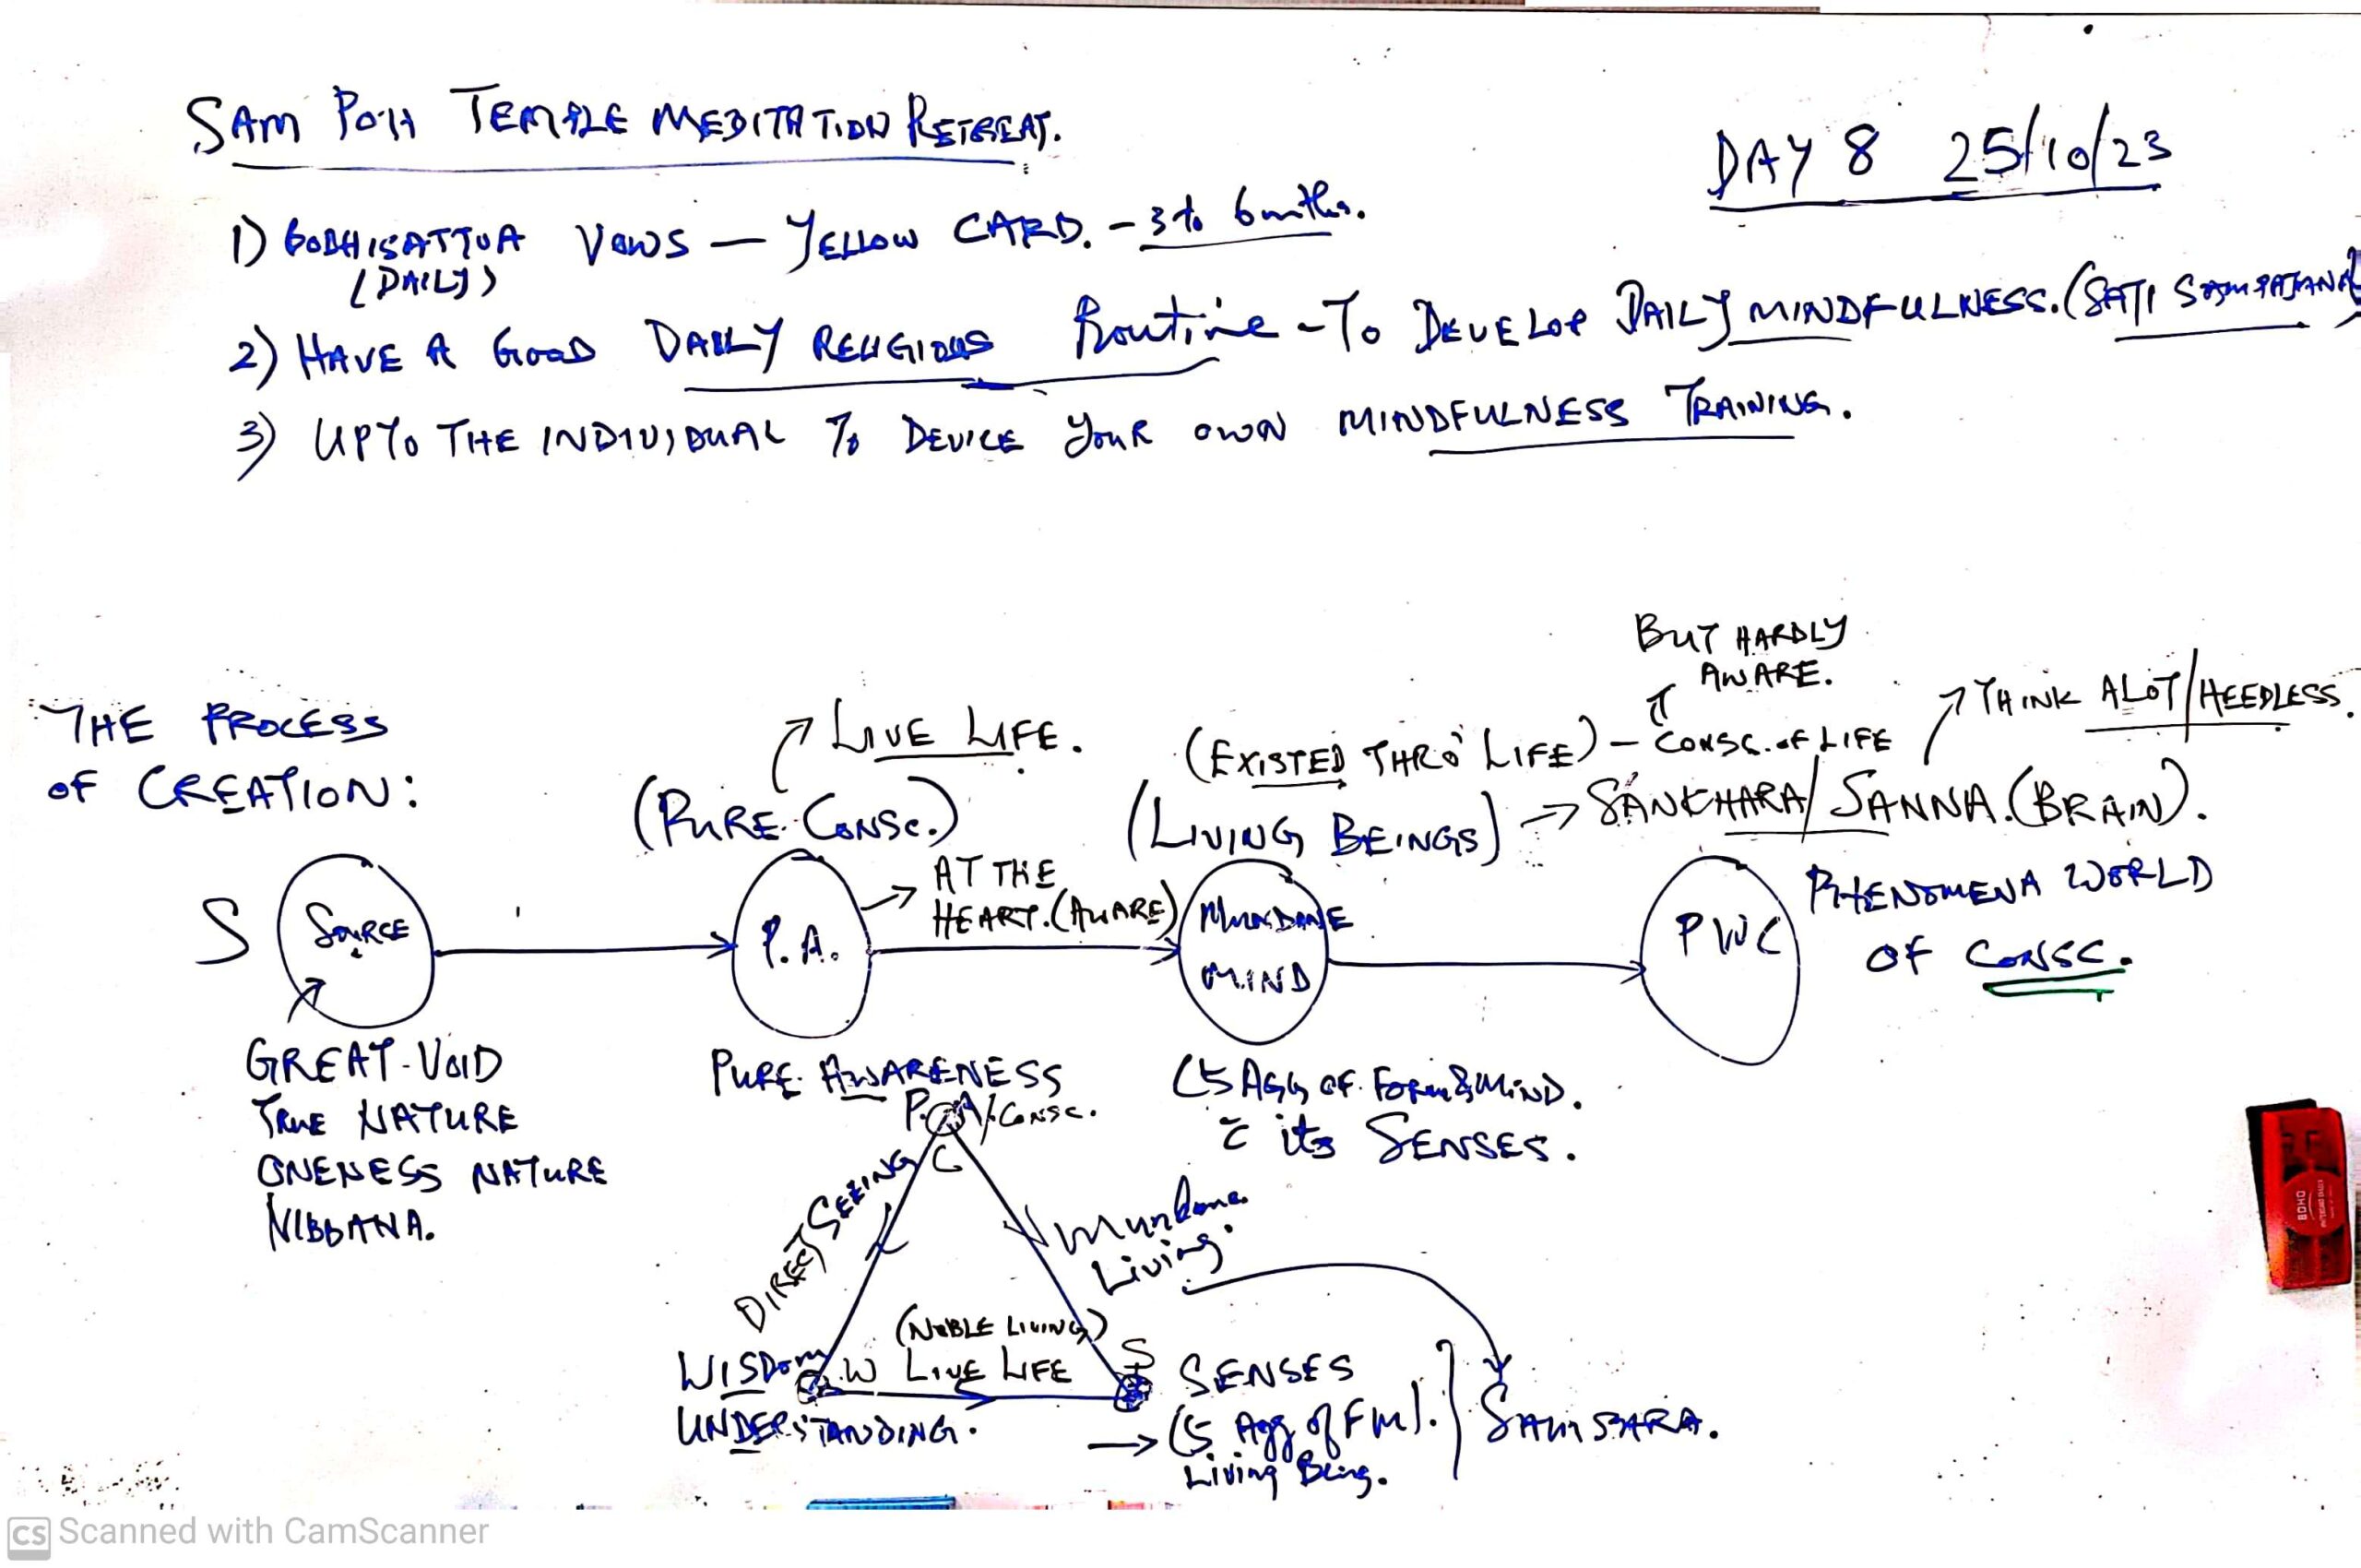 SAM POH TEMPLE MEDITATION RETREAT.
DAY 8 25/10/23
1) BODHISATTVA VOWS — YELLOW CARD. – 3 to 6 mths.
(DAILY)
2) HAVE A GOOD DAILY RELIGIOUS Routine – TO DEVELOP DAILY MINDFULNESS. (SATI SAMPAJANA)
3) UPTO THE INDIVIDUAL To DEVICE YOUR OWN MINDFULNESS TRAINING.
BUT HARDLY
AWARE.
THE PROCESS
OF CREATION:
LIVE LIFE.
(EXISTED THRO' LIFE) – CONSC. OF LIFE
THINK ALOT/HEEDLESS.
(PURE CONSC.)
(LIVING BEINGS) → SANKHARA/SANNA.(BRAIN).
S
SOURCE
P.A.
AT THE
HEART.(AWARE)
MUNDANE
MIND
PWC
PHENOMENA WORLD
OF CONSC.
GREAT-VOID
TRUE NATURE
ONENESS NATURE
NIBBANA.
PURE AWARENESS
P.A/CONSC.
C
(5 AGG OF FORM & MIND.
c̄ its SENSES.
DIRECT SEEING
Mundane
Living.
(NOBLE LIVING)
WISDOM W LIVE LIFE S SENSES
UNDERSTANDING.
→ (5 Agg of FM). } SAMSARA.
Living Being.
BOHO
CS Scanned with CamScanner